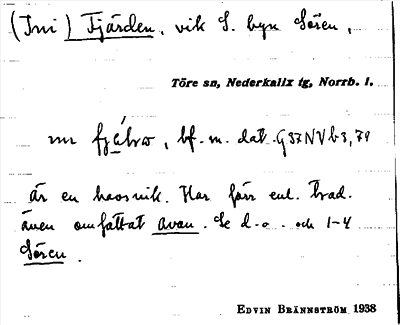 (Inri) Fjärden, vik S. byn Sören,
Töre sn, Nederkalix tg, Norrb. l.
bf. m. dat. G37NVb3,79
är en havsvik. Har förr enl. trad.
även omfattat avan. Se d.o. och 1-4
Sören.
EDVIN BRÄNNSTRÖM 1938